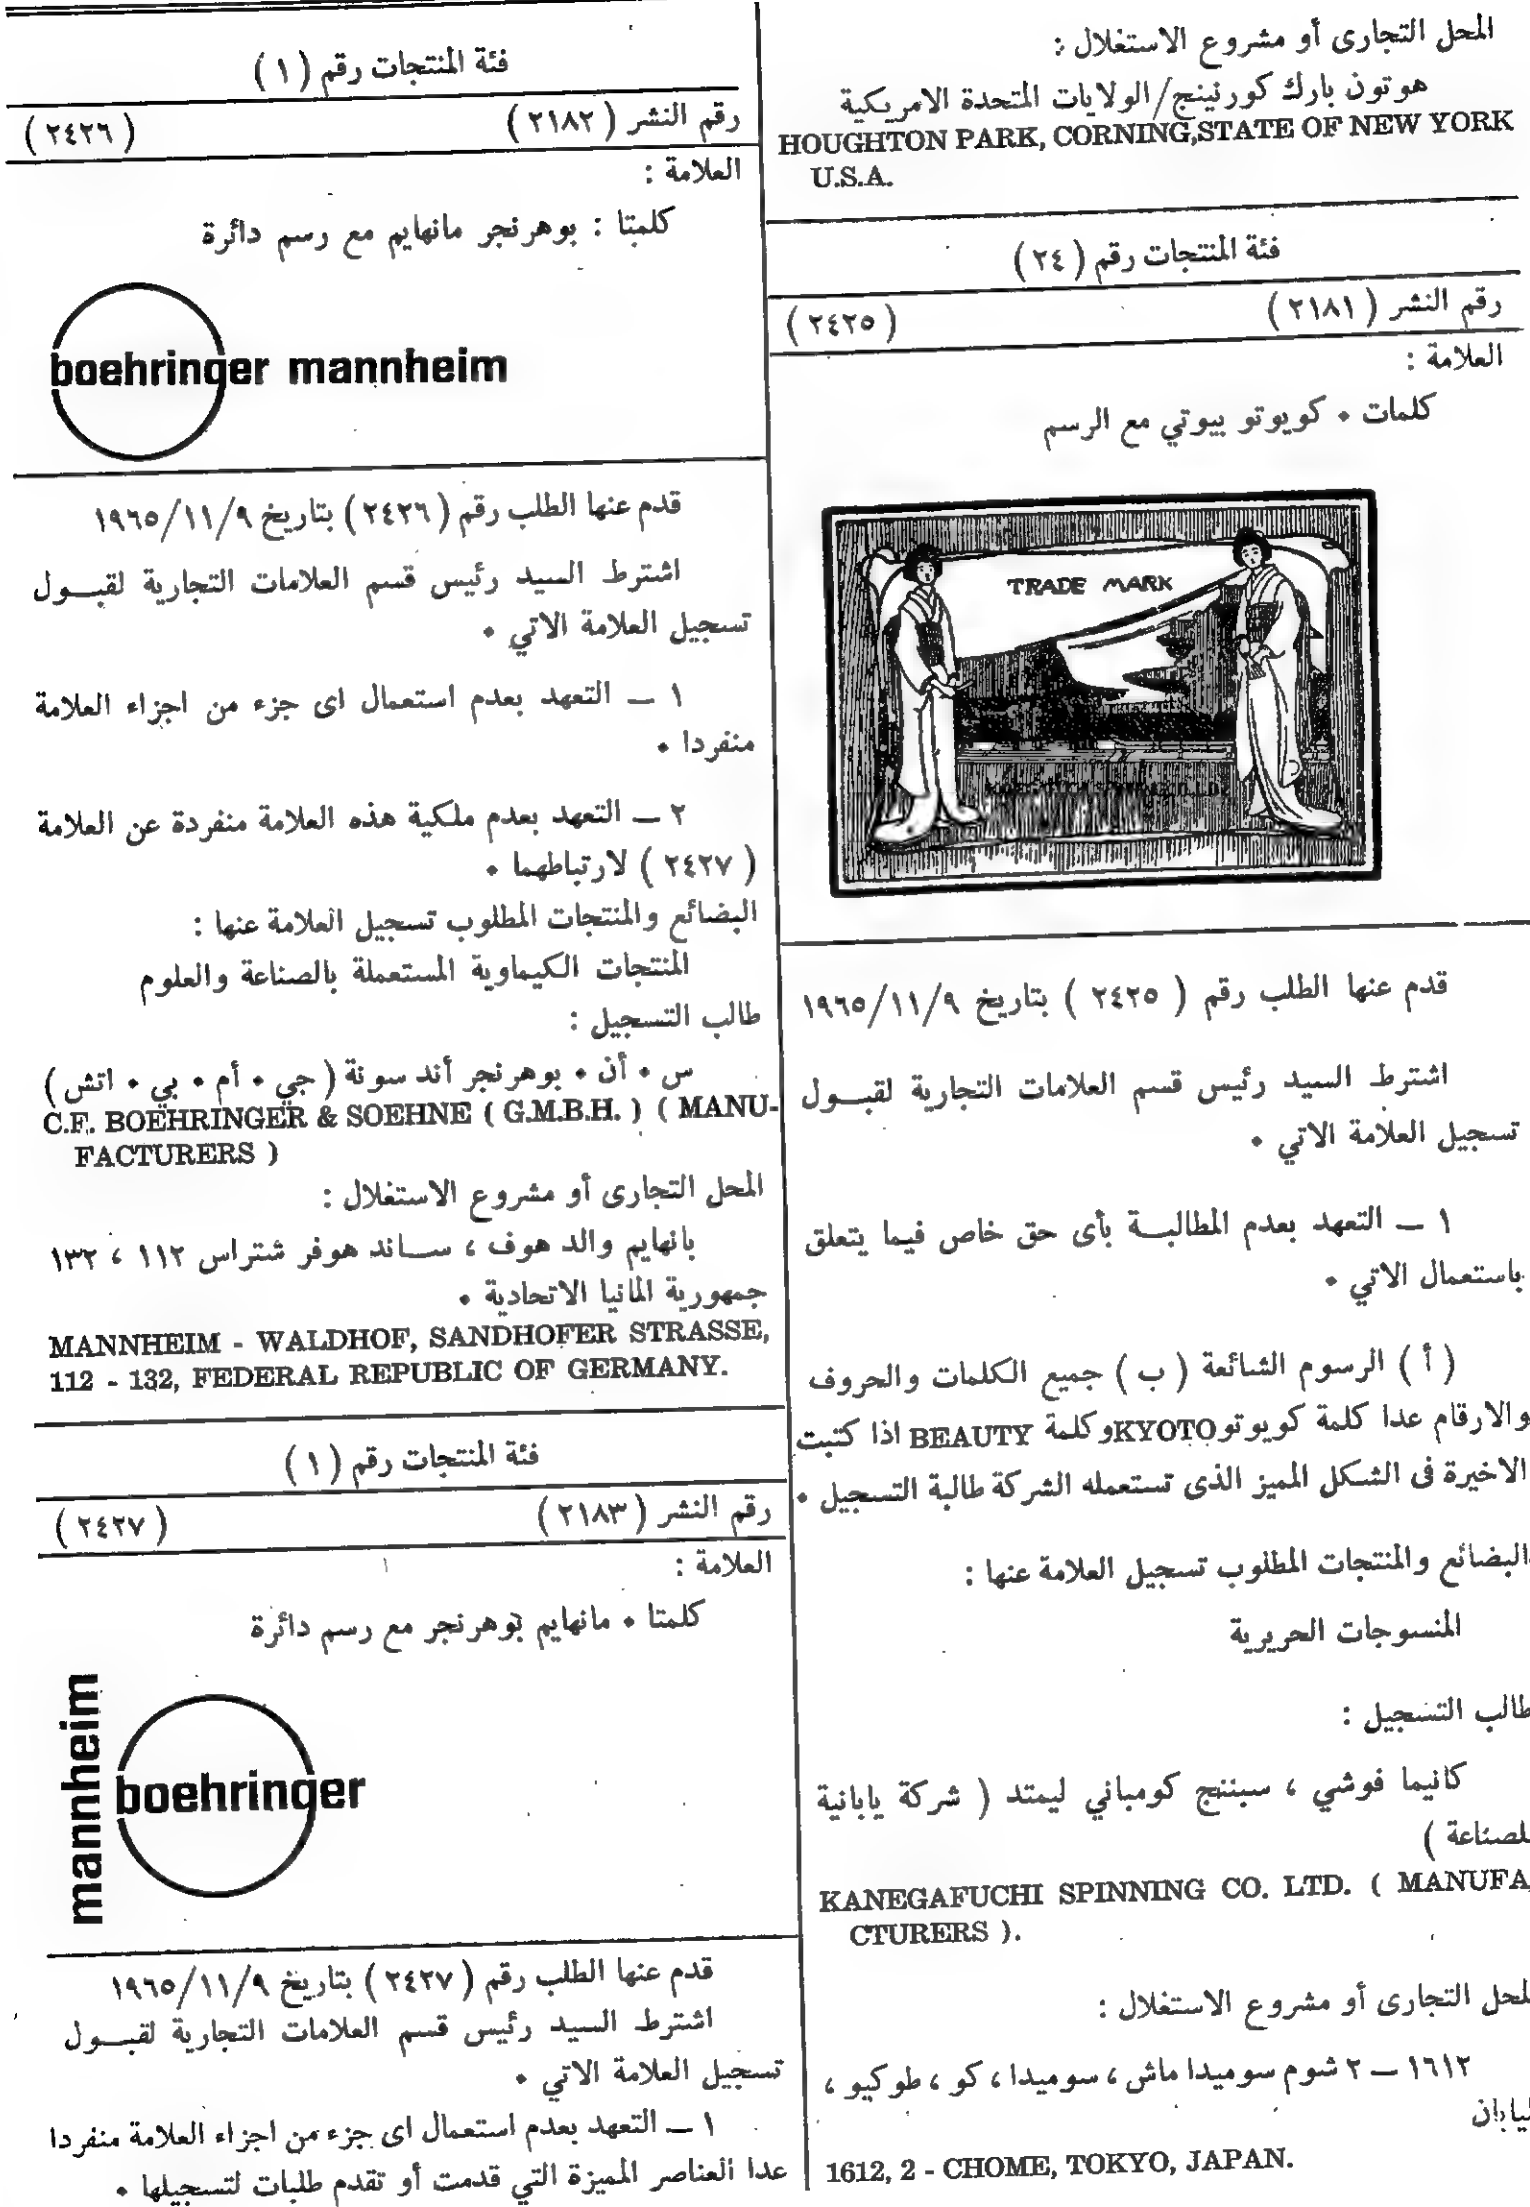 المحل التجارى أو مشروع الاستغلال :
هوتون بارك كورنينج/الولايات المتحدة الامريكية
HOUGHTON PARK, CORNING,STATE OF NEW YORK
U.S.A.
فئة المنتجات رقم ( ٢٤ )
رقم النشر ( ٢١٨١ ) ( ٢٤٢٥ )
العلامة :
كلمات ٠ كويوتو بيوتي مع الرسم
TRADE MARK
قدم عنها الطلب رقم ( ٢٤٢٥ ) بتاريخ ١٩٦٥/١١/٩
اشترط السيد رئيس قسم العلامات التجارية لقبـــول
تسجيل العلامة الاتي ٠
١ ــ التعهد بعدم المطالبـــة بأى حق خاص فيما يتعلق
باستعمال الاتي ٠
( أ ) الرسوم الشائعة ( ب ) جميع الكلمات والحروف
والارقام عدا كلمة كويوتو KYOTO وكلمة BEAUTY اذا كتبت
الاخيرة فى الشكل المميز الذى تستعمله الشركة طالبة التسجيل ٠
البضائع والمنتجات المطلوب تسجيل العلامة عنها :
المنسوجات الحريرية
طالب التسجيل :
كانيما فوشي ، سبننج كومباني ليمتد ( شركة يابانية
للصناعة )
KANEGAFUCHI SPINNING CO. LTD. ( MANUFA,
CTURERS ).
المحل التجارى أو مشروع الاستغلال :
١٦١٢ ــ ٢ شوم سوميدا ماش ، سوميدا ، كو ، طوكيو ،
اليابان
1612, 2 - CHOME, TOKYO, JAPAN.
فئة المنتجات رقم ( ١ )
رقم النشر ( ٢١٨٢ ) ( ٢٤٢٦ )
العلامة :
كلمتا : بوهرنجر مانهايم مع رسم دائرة
boehringer mannheim
قدم عنها الطلب رقم ( ٢٤٢٦ ) بتاريخ ١٩٦٥/١١/٩
اشترط السيد رئيس قسم العلامات التجارية لقبـــول
تسجيل العلامة الاتي ٠
١ ــ التعهد بعدم استعمال اى جزء من اجزاء العلامة
منفردا ٠
٢ ــ التعهد بعدم ملكية هذه العلامة منفردة عن العلامة
( ٢٤٢٧ ) لارتباطهما ٠
البضائع والمنتجات المطلوب تسجيل العلامة عنها :
المنتجات الكيماوية المستعملة بالصناعة والعلوم
طالب التسجيل :
س ٠ أن ٠ بوهرنجر أند سونة ( جي ٠ أم ٠ بي ٠ اتش )
C.F. BOEHRINGER & SOEHNE ( G.M.B.H. ) ( MANU-
FACTURERS )
المحل التجارى أو مشروع الاستغلال :
بانهايم والد هوف ، ســاند هوفر شتراس ١١٢ ، ١٣٢
جمهورية المانيا الاتحادية ٠
MANNHEIM - WALDHOF, SANDHOFER STRASSE,
112 - 132, FEDERAL REPUBLIC OF GERMANY.
فئة المنتجات رقم ( ١ )
رقم النشر ( ٢١٨٣ ) ( ٢٤٢٧ )
العلامة :
كلمتا ٠ مانهايم بوهرنجر مع رسم دائرة
mannheim
boehringer
قدم عنها الطلب رقم ( ٢٤٢٧ ) بتاريخ ١٩٦٥/١١/٩
اشترط السيد رئيس قسم العلامات التجارية لقبـــول
تسجيل العلامة الاتي ٠
١ ــ التعهد بعدم استعمال اى جزء من اجزاء العلامة منفردا
عدا العناصر المميزة التي قدمت أو تقدم طلبات لتسجيلها ٠